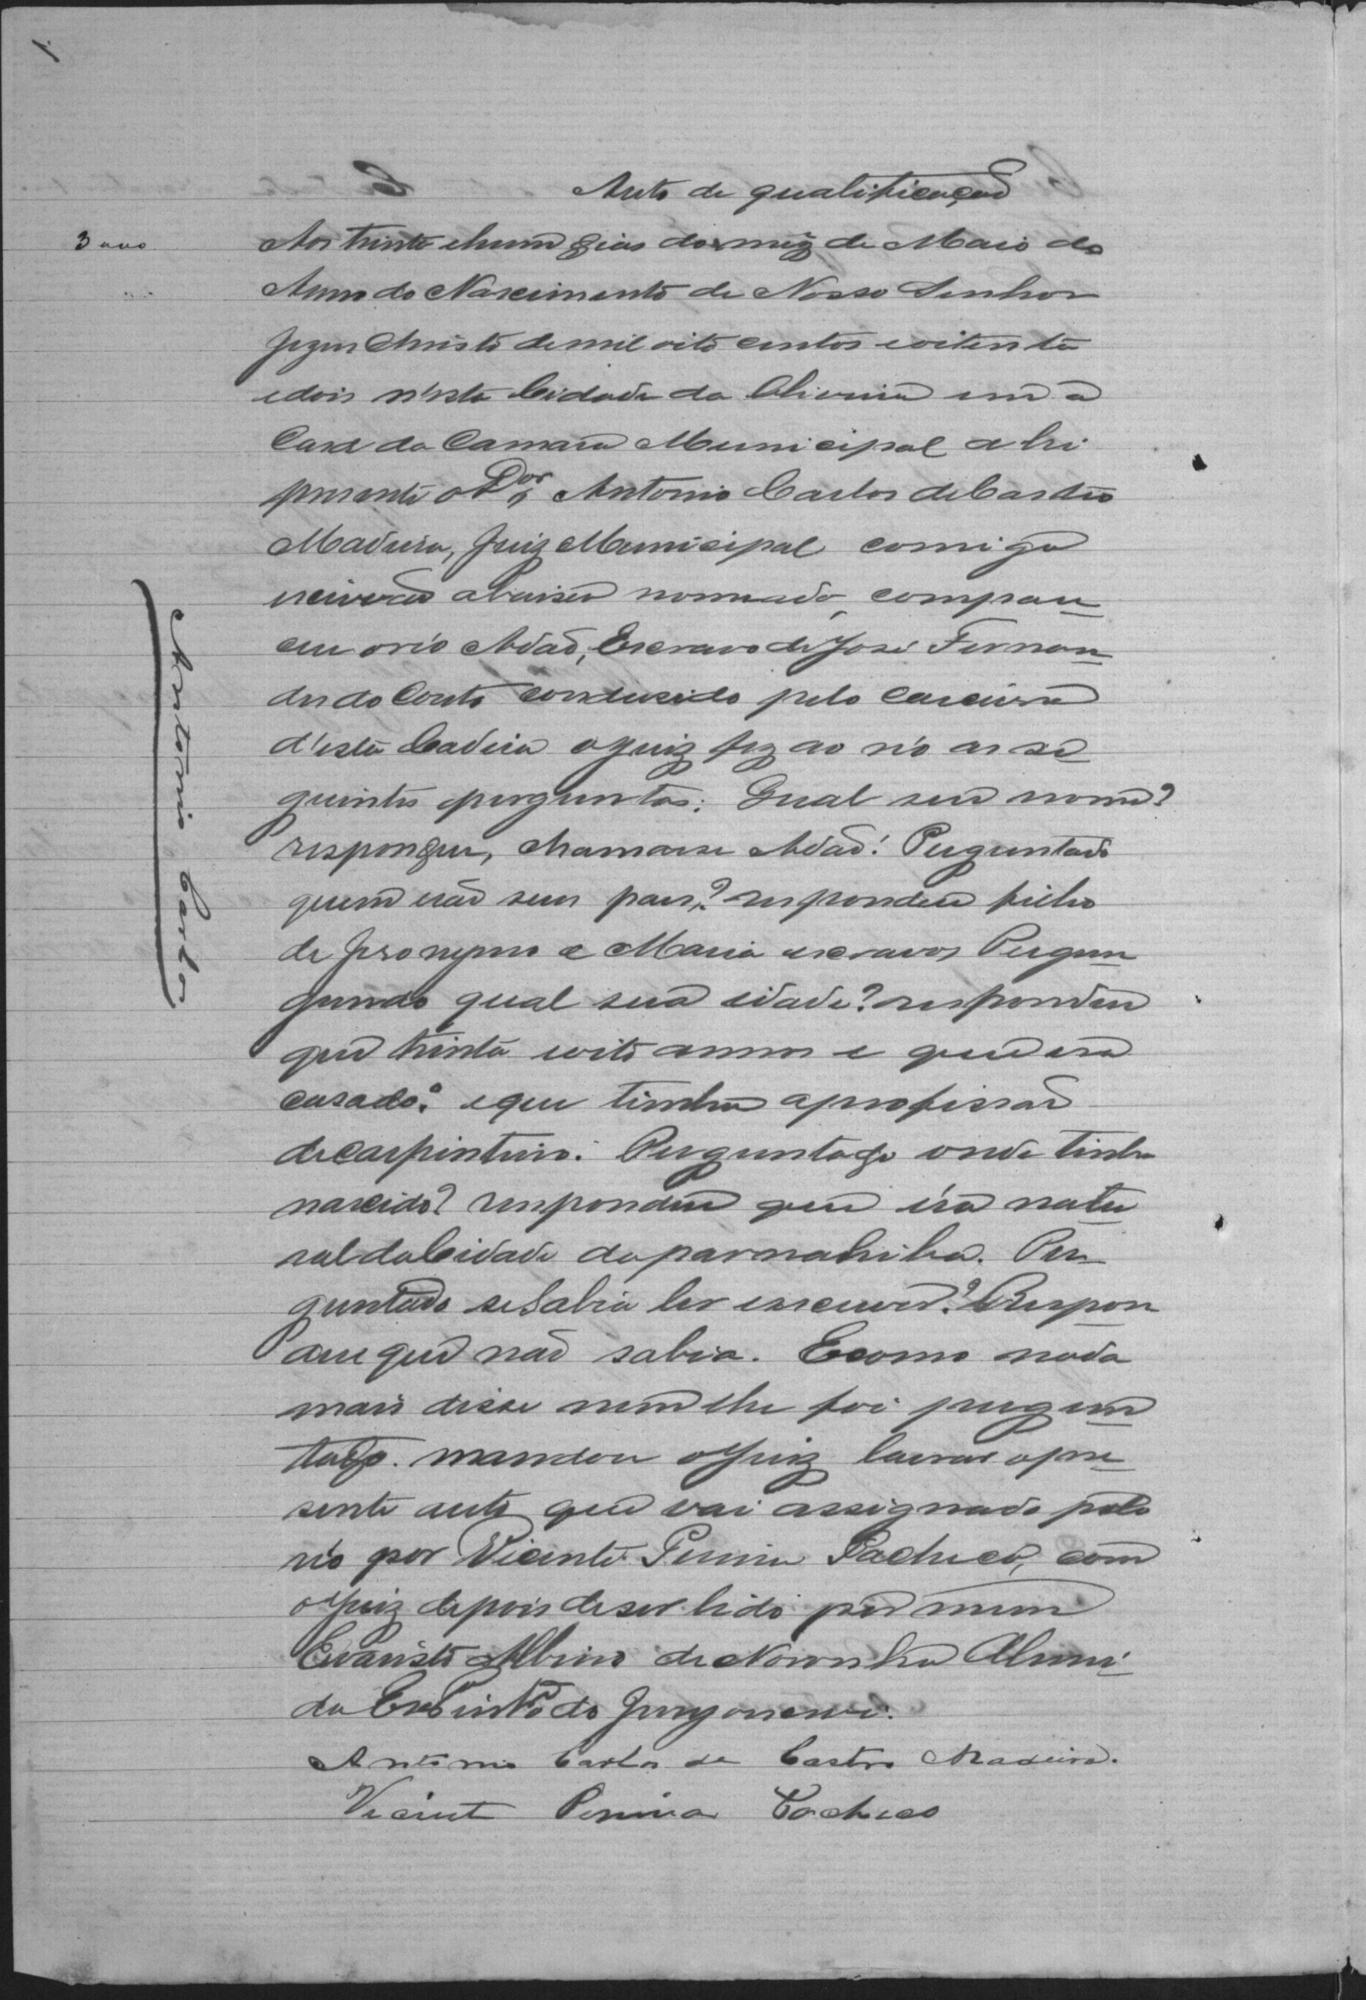 Auto de qualificação
3000
Aos trinta ehum dias do mez de Maio do
Anno do Nascimento de Nosso Senhor
Jezus Christo de mil oito centos e oitenta
edois n'esta Cidade da Oliveira em a
Casa da Camara Municipal ahi
presente o Dor Antonio Carlos de Castro
Madeira, Juiz Municipal comigo
escivão abaixo nomeado, compare
ceu oréo Adaõ, Escravo de José Fernan
des do Couto condusido pelo Carcereiro
d'esta Cadeia o Juiz fez ao réo as se
guintes perguntas: Qual seu nome?
respondeu, chamarse Adaõ: Perguntado
quem eraõ seus pais? respondeu filho
de Jeronymo e Maria escravos Pergun
guntado qual sua idade? respondeu
que trinta eoito annos e que era
casado: eque tinha aprofissaõ
decarpinteiro. Perguntado onde tinha
nascido? respondeu que éra natu
ral da Cidade da parnahiba. Per
guntado seSabia ler eescrever? Respon
deu que naõ sabia. Ecomo nada
mais disse nem lhe foi pergun
tado. mandou o Juiz lavrar opre
sente auto que vai assignado pelo
réo por Vicente Pereira Pacheco, com
o Juiz depois deser lido por mim
Evaristo Albino de Noronha
do Jury
Antonio Carlos de Castro Madeira.
Vicente Pereira Pacheco
Antonio Carlos